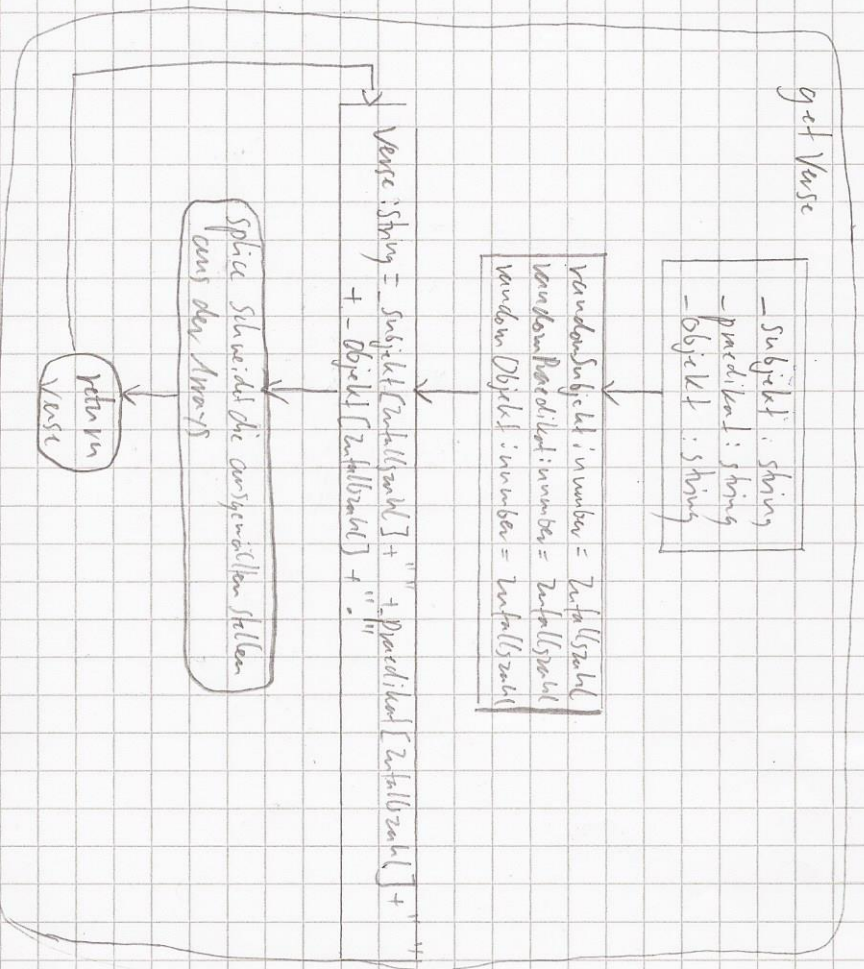 getVerse
_subjekt : string
_praedikat : string
_Objekt : string
randomSubjekt : number = Zufallszahl
randomPraedikat : number = Zufallszahl
randomObjekt : number = Zufallszahl
Verse : string = _Subjekt[Zufallszahl] + " " + _Praedikat[Zufallszahl] + " "
+ _Objekt[Zufallszahl] + "."
splice schneidet die ausgewählten stellen
aus den Arrays
return
Verse